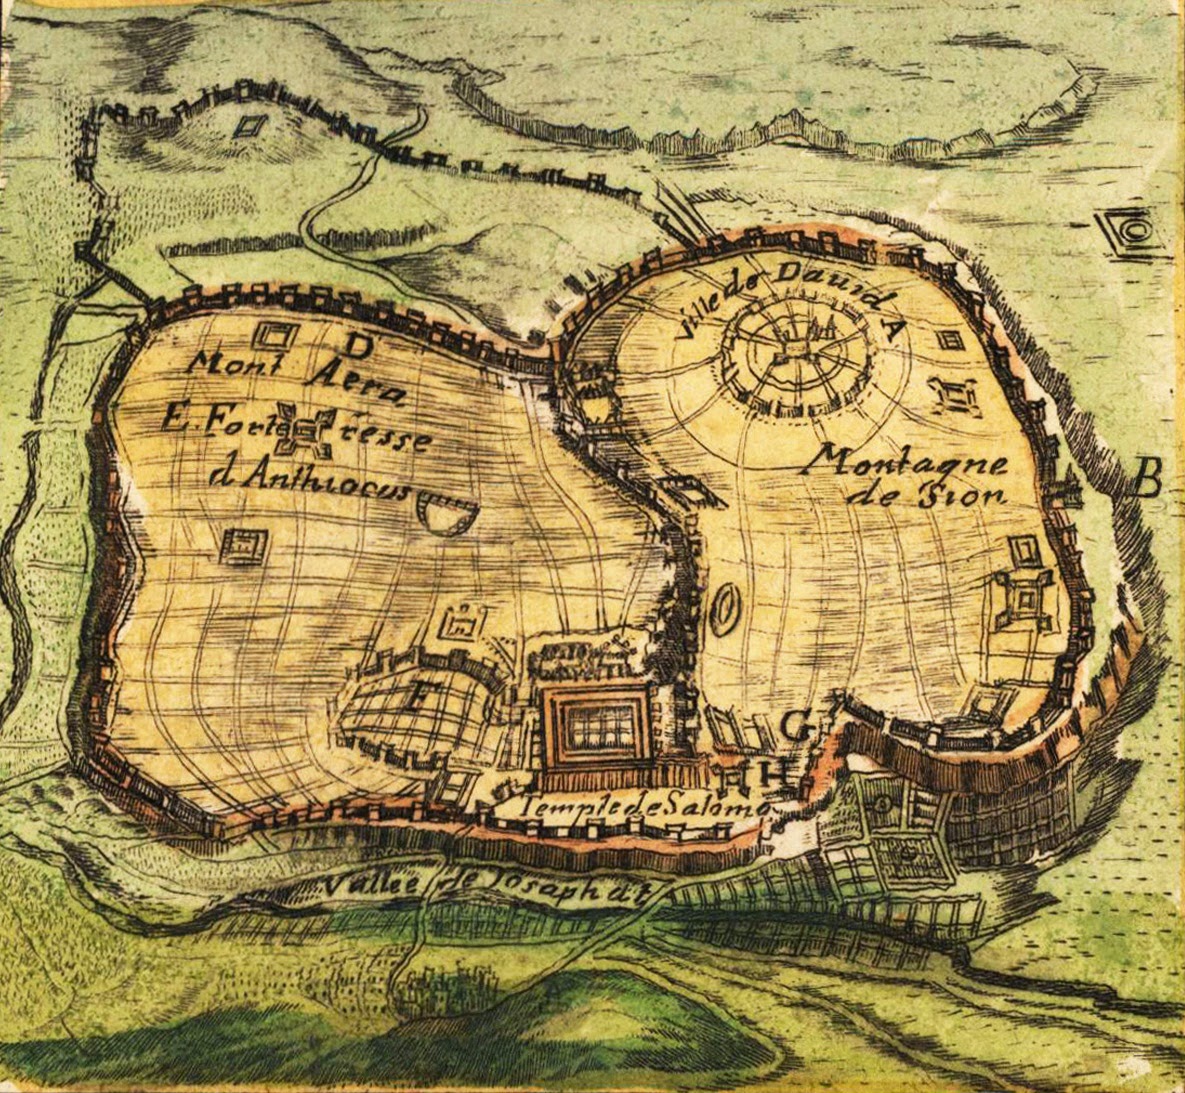 Ville de Dauid A
D
Mont Acra
E Forteresse
d Anthiocus
Montagne
de Sion
B
F
G
H
Temple de Salomo
Vallee de Iosaphat